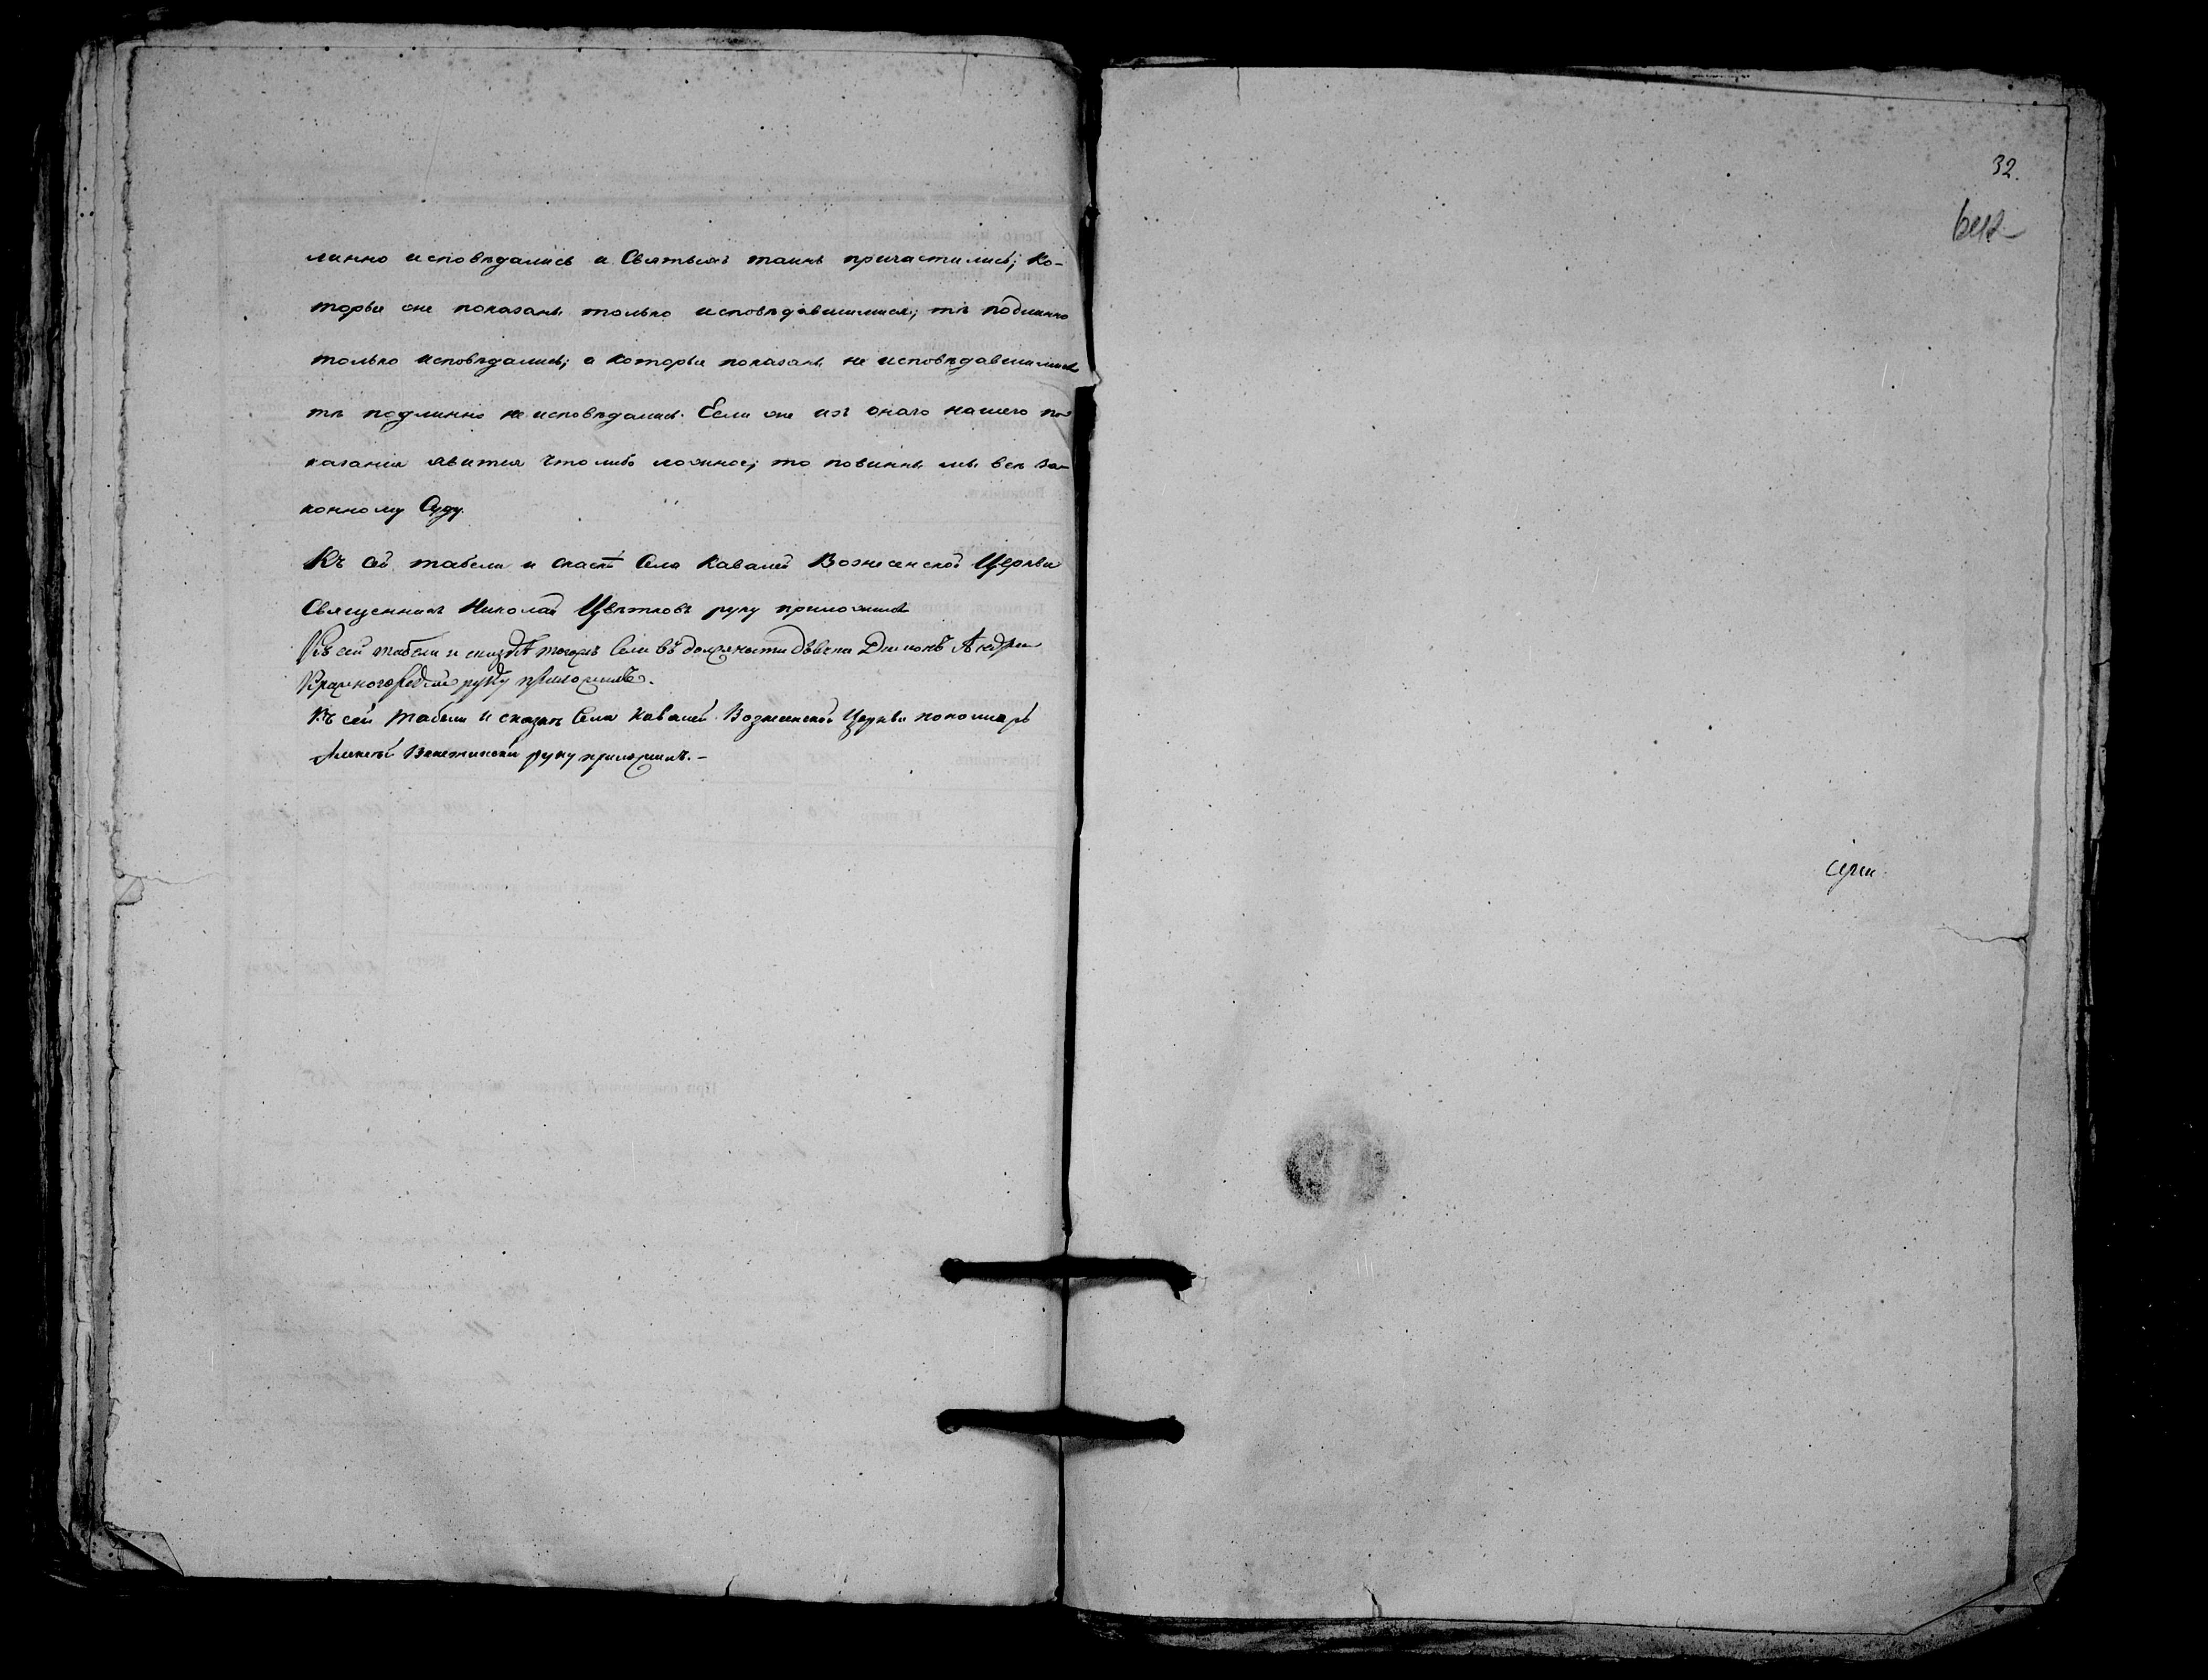 линно исповѣдались и Святыхъ таинъ причастились; ко-
торые же показаны только исповѣдавшимися; тѣ подлинно
только исповѣдались; а которые показаны не исповѣдавшимися
тѣ подлинно не исповѣдались. Если же изъ онаго нашего по
казанія явится что либо ложное; то повинны мы всѣ за-
конному Суду.
Къ сей табели и Села Кавалей Вознесенской Церкви
Священникъ Николай Цвѣтковъ руку приложилъ
Къ сей табели и тогожъ Села въ должности Діаконъ Андрей
руку приложилъ.
Къ сей табели и сказкѣ Села Кавалей Вознесенской Церкви пономарь
Алексѣй руку приложилъ.-
32.